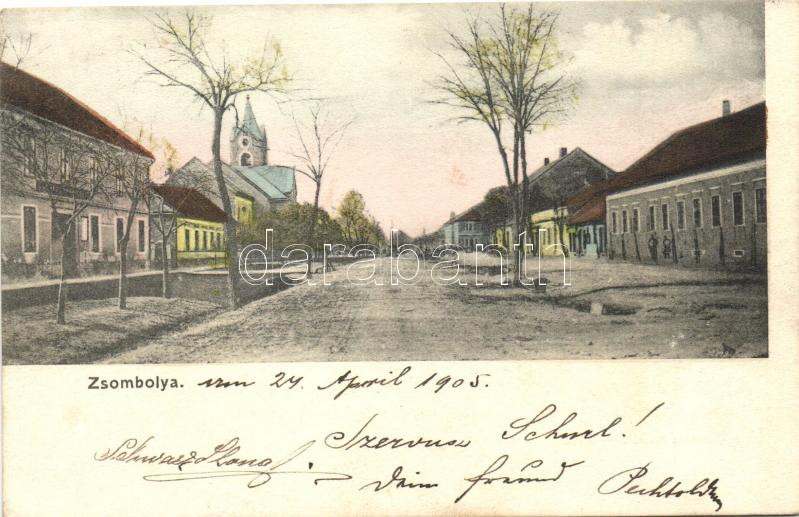 darabanth
Zsombolya. am 24 April 1905.
Szervusz Schurl!
Schwarz
dein freund Pechtold